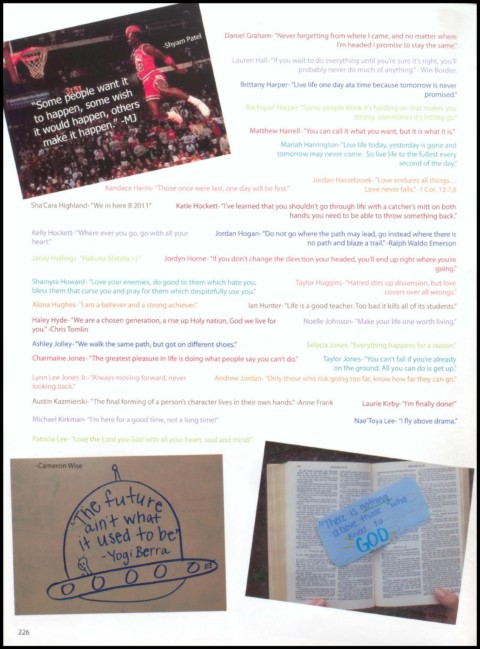 -Shyam Patel
"Some people want it
to happen, some wish
it would happen, others
make it happen." -MJ
Daniel Graham- "Never forgetting from where I came, and no matter where
I'm headed I promise to stay the same."
Lauren Hall- "If you wait to do everything until you're sure it's right, you'll
probably never do much of anything." - Win Borden
Brittany Harper- "Live life one day ata time because tomorrow is never
promised."
Harper- "Some people think it's holding on that makes you
strong sometimes it's letting go."
Matthew Harrell- "You can call it what you want, but it is what it is."
Mariah Harrington "Live life today, yesterday is gone and
tomorrow may never come. So live life to the fullest every
second of the day."
Jordan Hasselbring- "Love endures all things...
Love never fails." -1 Cor. 13:7,8
Kandace Harris- "Those once were last, one day will be first."
Sha'Cara Highland- "We in here B 2011"
Katie Hockett- "I've learned that you shouldn't go through life with a catcher's mitt on both
hands; you need to be able to throw something back."
Kelly Hockett- "Where ever you go, go with all your
heart."
Jordan Hogan- "Do not go where the path may lead, go instead where there is
no path and blaze a trail." -Ralph Waldo Emerson
Janay Hollings- "Hakuna Matata =)"
Jordyn Horne- "If you don't change the direction your headed, you'll end up right where you're
going."
Shamyra Howard- "Love your enemies, do good to them which hate you,
bless them that curse you and pray for them which despitefully use you."
Taylor Huggins- "Hatred stirs up dissension, but love
covers over all wrongs."
Alona Hughes- "I am a believer and a strong achiever."
Ian Hunter- "Life is a good teacher. Too bad it kills all of its students."
Haley Hyde- "We are a chosen generation, a rise up Holy nation, God we live for
you." -Chris Tomlin
Noelle Johnson- "Make your life one worth living."
Ashley Jolley- "We walk the same path, but got on different shoes."
Selycia Jones- "Everything happens for a reason."
Charmaine Jones- "The greatest pleasure in life is doing what people say you can't do."
Taylor Jones- "You can't fail if you're already
on the ground. All you can do is get up."
Lynn Lee Jones Jr.- "Always moving forward, never
looking back."
Andrew Jordan- "Only those who risk going too far, know how far they can go."
Austin Kazmierski- "The final forming of a person's character lives in their own hands." -Anne Frank
Laurie Kirby- "I'm finally done!"
Michael Kirkman- "I'm here for a good time, not a long time!"
Nae'Toya Lee- "I fly above drama."
Patricia Lee- "Love the Lord you God with all your heart, soul and mind."
-Cameron Wise
"The future
ain't what
it used to be"
-Yogi Berra
"There is nothing
above those who
to
GOD
226